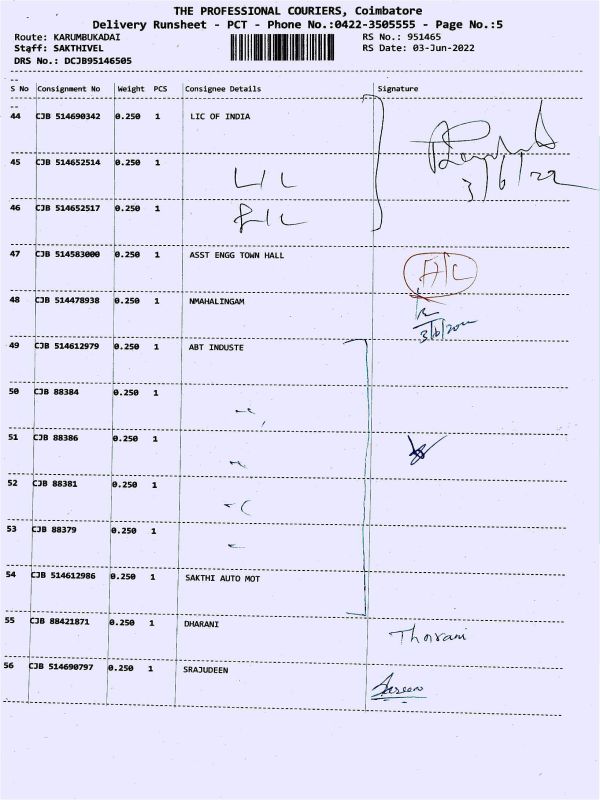 THE PROFESSIONAL COURIERS, Coimbatore
Delivery Runsheet - PCT - Phone No.:0422-3505555 - Page No.:5
Route: KARUMBUKADAI RS No.: 951465
Staff: SAKTHIVEL RS Date: 03-Jun-2022
DRS No.: DCJB95146505
S No Consignment No Weight PCS Consignee Details Signature
44 CJB 514690342 0.250 1 LIC OF INDIA
45 CJB 514652514 0.250 1 LIC
3/6/22
46 CJB 514652517 0.250 1 LIC
47 CJB 514583000 0.250 1 ASST ENGG TOWN HALL A/C
48 CJB 514478938 0.250 1 NMAHALINGAM
3/6/2022
49 CJB 514612979 0.250 1 ABT INDUSTE
50 CJB 88384 0.250 1
51 CJB 88386 0.250 1
52 CJB 88381 0.250 1
53 CJB 88379 0.250 1
54 CJB 514612986 0.250 1 SAKTHI AUTO MOT
55 CJB 88421871 0.250 1 DHARANI Tharani
56 CJB 514690797 0.250 1 SRAJUDEEN